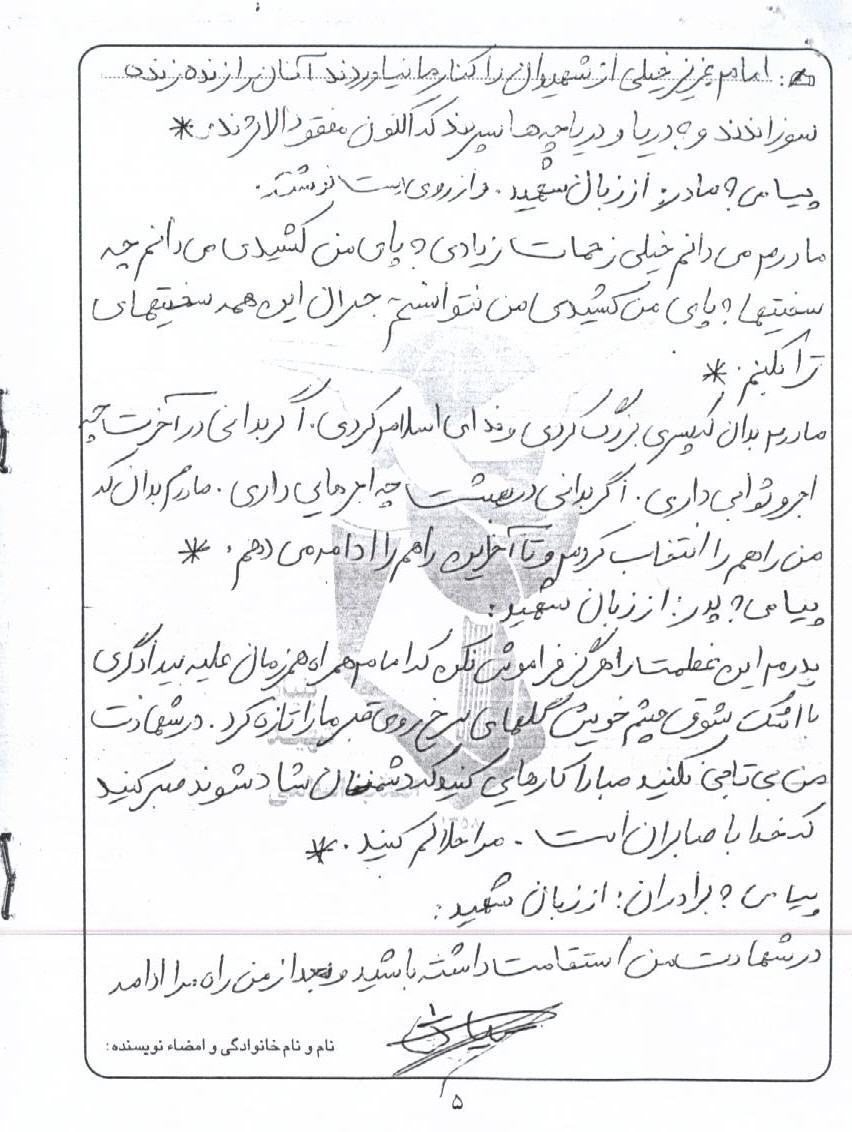 : امام عزیز خیلی از شهیدان را کنار ما نیاوردند آنان را زنده زنده
سوزاندند و به دریا و دریاچه ها سپردند که اکنون مفقودالاثرند. *
پیامی به مادر: از زبان شهید. و از روی است نوشته.
مادرم می دانم خیلی زحمات زیادی به پای من کشیدی می دانم چه
سختیها به پای من کشیدی من نتوانستم جبران این همه سختیهای
ترا بکنم. *
مادرم بدان که پسری بزرگ کردی و فدای اسلام کردی. اگر بدانی در آخرت چه
اجر و ثوابی داری. اگر بدانی در بهشت چه اجرهایی داری. مادرم بدان که
من راهم را انتخاب کردم و تا آخر این راهم را ادامه می دهم. *
پیامی به پدر: از زبان شهید:
پدرم این عظمت را هرگز فراموش نکن که امام همراه همرزمان علیه بیدادگری
با اشک شوق چشم خویش گلهای سرخ روی قبر ما را تازه کرد. در شهادت
من بی تابی نکنید مبادا کارهایی کنید که دشمنان شاد شوند صبر کنید
که خدا با صابران است. مرا حلالم کنید. *
پیامی به برادران: از زبان شهید:
در شهادت من استقامت داشته باشید و بعد از من راه مرا ادامه
نام و نام خانوادگی و امضاء نویسنده:
۵